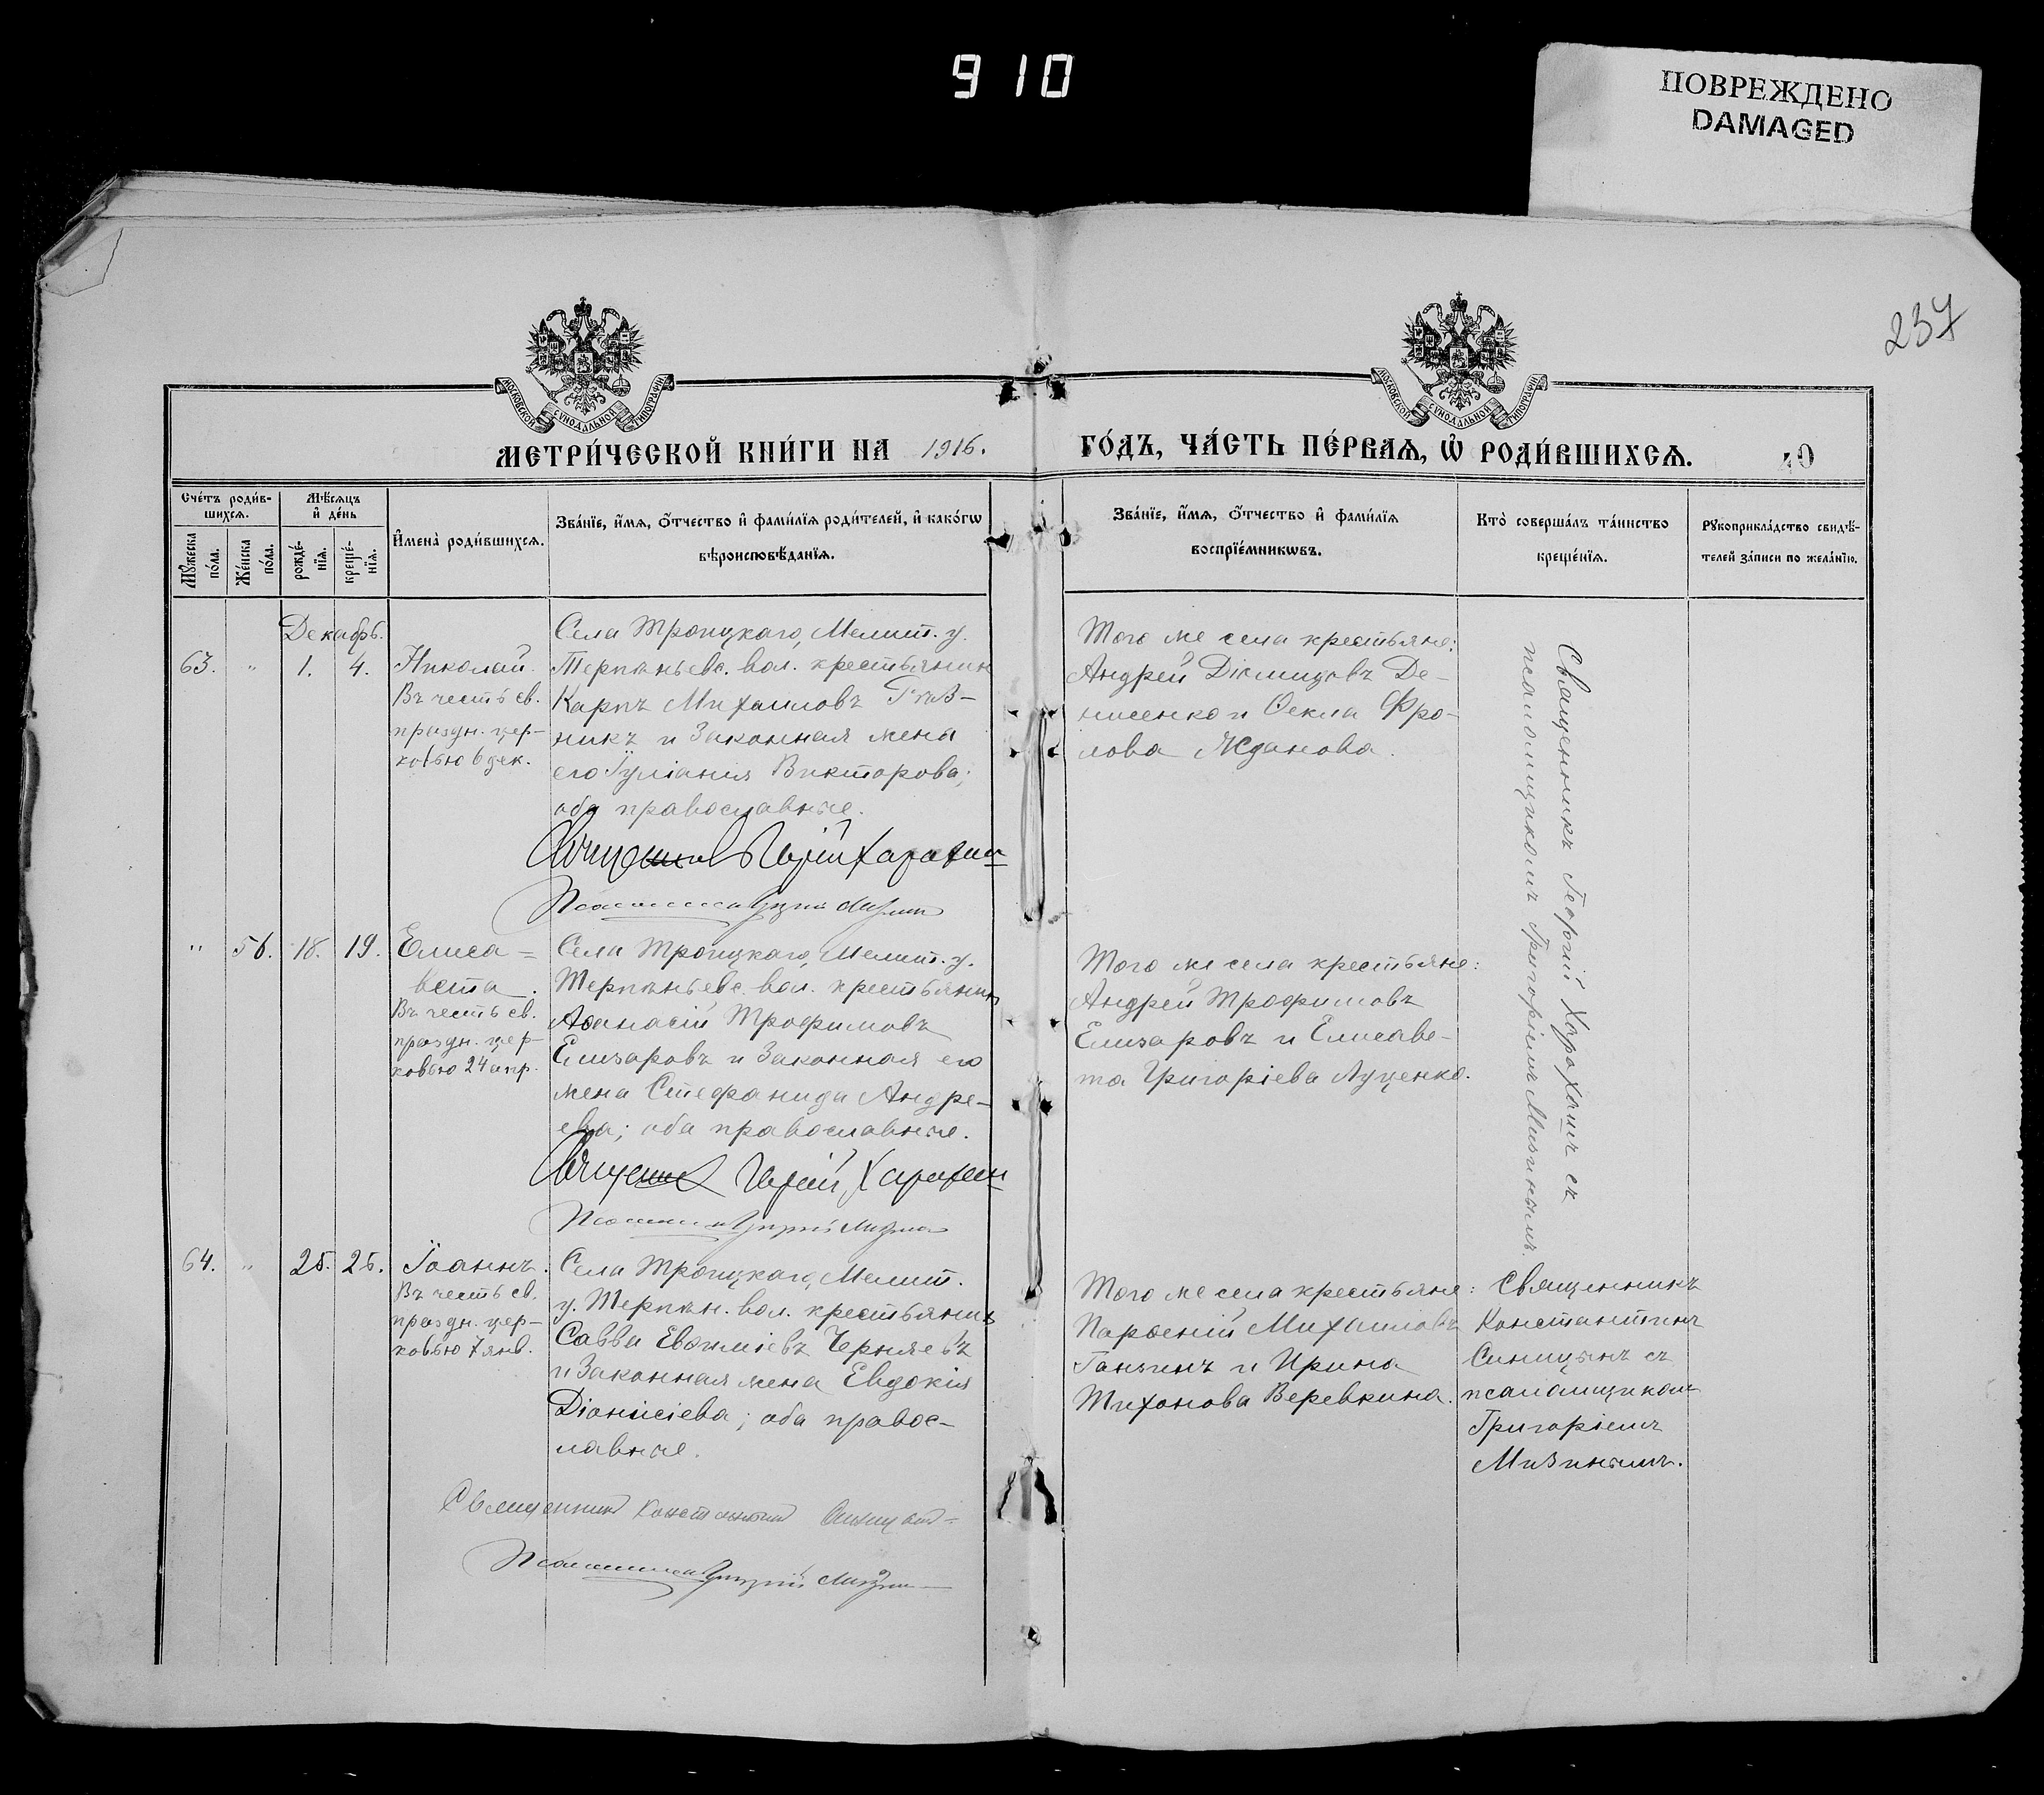 910
ПОВРЕЖДЕНО
DAMAGED
237
МОСКОВСКОЙ СѴНОДАЛЬНОЙ ТИПОГРАФІИ
МОСКОВСКОЙ СѴНОДАЛЬНОЙ ТИПОГРАФІИ
МЕТРИ́ЧЕСКОЙ КНИ́ГИ НА 1916. ГО́ДЪ, ЧА́СТЬ ПЕ́РВАѦ, Ѡ҆ РОДИ́ВШИХСѦ.
40
Сче́тъ роди́в-
шихсѧ.
Мꙋ́жеска
по́ла.
Же́нска
по́ла.
Мѣ́сѧцъ
и҆ де́нь
рожде́-
нїѧ.
креще́-
нїѧ.
И҆мена̀ роди́вшихсѧ.
Зва́нїе, и҆́мѧ, ѻ҆́тчество и҆ фами́лїѧ роди́телей, и҆ како́гѡ
вѣроисповѣ́данїѧ.
Зва́нїе, и҆́мѧ, ѻ҆́тчество и҆ фами́лїѧ
воспрїе́мникѡвъ.
Кто̀ соверша́лъ та́инство
креще́нїѧ.
Рꙋкоприкла́дство свидѣ́-
телей за́писи по жела́нїю.
Декабрь.
63. " 1. 4.
Николай.
Въ честь св.
праздн. цер-
ковью 6 дек.
Села Троицкаго, Мелит. у.
Терпѣньевс. вол. крестьянинъ
Карпъ Михаиловъ
никъ и законная жена
его Іуліанія Викторова;
оба православные.
Того же села крестьяне:
Андрей Де-
нисенко и Ѳекла Фро-
лова Жданова.
Священникъ Георгій съ
псаломщикомъ Григоріемъ Мизинымъ.
" 56. 18. 19.
Елиса=
вета.
Въ честь св.
праздн. цер-
ковью 24 апр.
Села Троицкаго, Мелит. у.
Терпѣньевс. вол. крестьянинъ
Аѳанасій Трофимовъ
Елизаровъ и законная его
жена Стефанида Андре-
ева; оба православные.
Того же села крестьяне:
Андрей Трофимовъ
Елизаровъ и Елисаве-
та Григоріева Луценко.
64. " 25. 25.
Іоаннъ.
Въ честь св.
праздн. цер-
ковью 7 янв.
Села Троицкаго, Мелит.
у. Терпѣн. вол. крестьянинъ
Савва Евѳиміевъ Черняевъ
и законная жена Евдокія
Діонисіева; оба правос-
лавные.
Того же села крестьяне:
Парѳеній Михаиловъ
Ганзинъ и Ирина
Тихонова Веревкина.
Священникъ
Константинъ
Синицынъ съ
псаломщикомъ
Григоріемъ
Мизинымъ.
Священникъ Константинъ Синицынъ